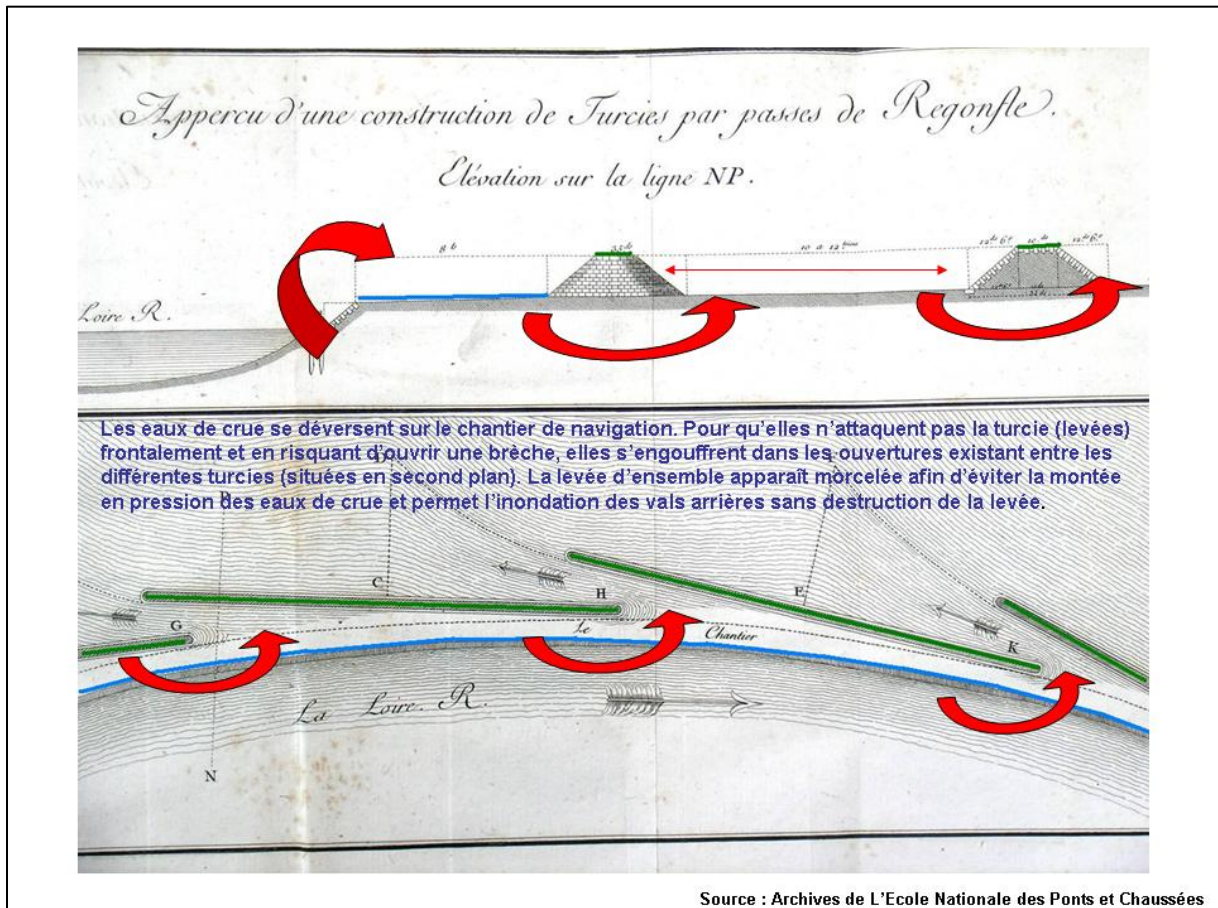 Appercu d'une construction de Turcies par passes de Regonfle.
Elévation sur la ligne NP.
8 ts
10 a 12 toises
12ds 6p. 10 ds 12ds 6p.
Loire R.
Les eaux de crue se déversent sur le chantier de navigation. Pour qu’elles n’attaquent pas la turcie (levées)
frontalement et en risquant d’ouvrir une brèche, elles s’engouffrent dans les ouvertures existant entre les
différentes turcies (situées en second plan). La levée d’ensemble apparaît morcelée afin d’éviter la montée
en pression des eaux de crue et permet l’inondation des vals arrières sans destruction de la levée.
C
E
H
G
Le Chantier
K
La Loire. R.
N
Source : Archives de L'Ecole Nationale des Ponts et Chaussées